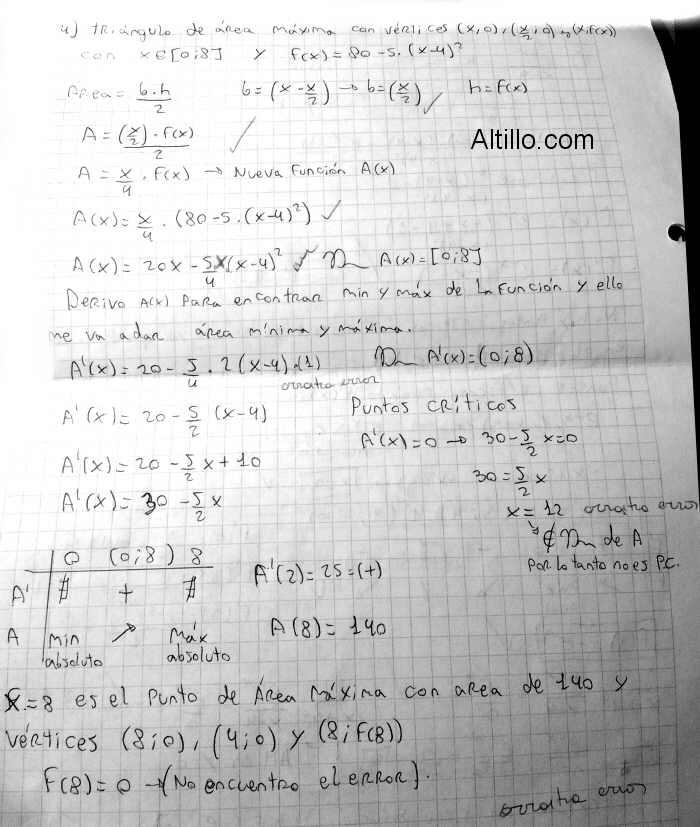 4) triángulo de área máxima con vértices (x,0), (x/2,0) y (x,f(x))
con x∈[0;8] y f(x)=80-5.(x-4)²
Area = b.h/2 b=(x-x/2) → b=(x/2) ✓ h=f(x)
Altillo.com
A=(x/2).f(x)/2 ✓
A = x/4 . f(x) → Nueva función A(x)
A(x)= x/4 . (80-5.(x-4)²) ✓
A(x)= 20x - 5/4 x(x-4)² ✓ Dm A(x)=[0;8]
Derivo A(x) para encontrar min y máx de la función y ello
me va a dar área mínima y máxima.
A'(x)= 20 - 5/4 . 2(x-4).(1) Dm A'(x)=(0;8)
arrastra error
A'(x)= 20 - 5/2 (x-4) Puntos críticos
A'(x)=0 → 30-5/2 x=0
A'(x)= 20 - 5/2 x + 10
30= 5/2 x
A'(x)= 30 - 5/2 x
x= 12 arrastra error
↘ ∉ Dm de A
Por lo tanto no es P.C.
0 (0;8) 8
A' ∄ + ∄ A'(2)=25=(+)
A min ↗ máx A(8)=140
absoluto absoluto
x=8 es el punto de Área máxima con area de 140 y
vértices (8;0), (4;0) y (8;f(8))
f(8)=0 → (No encuentro el error).
arrastra error